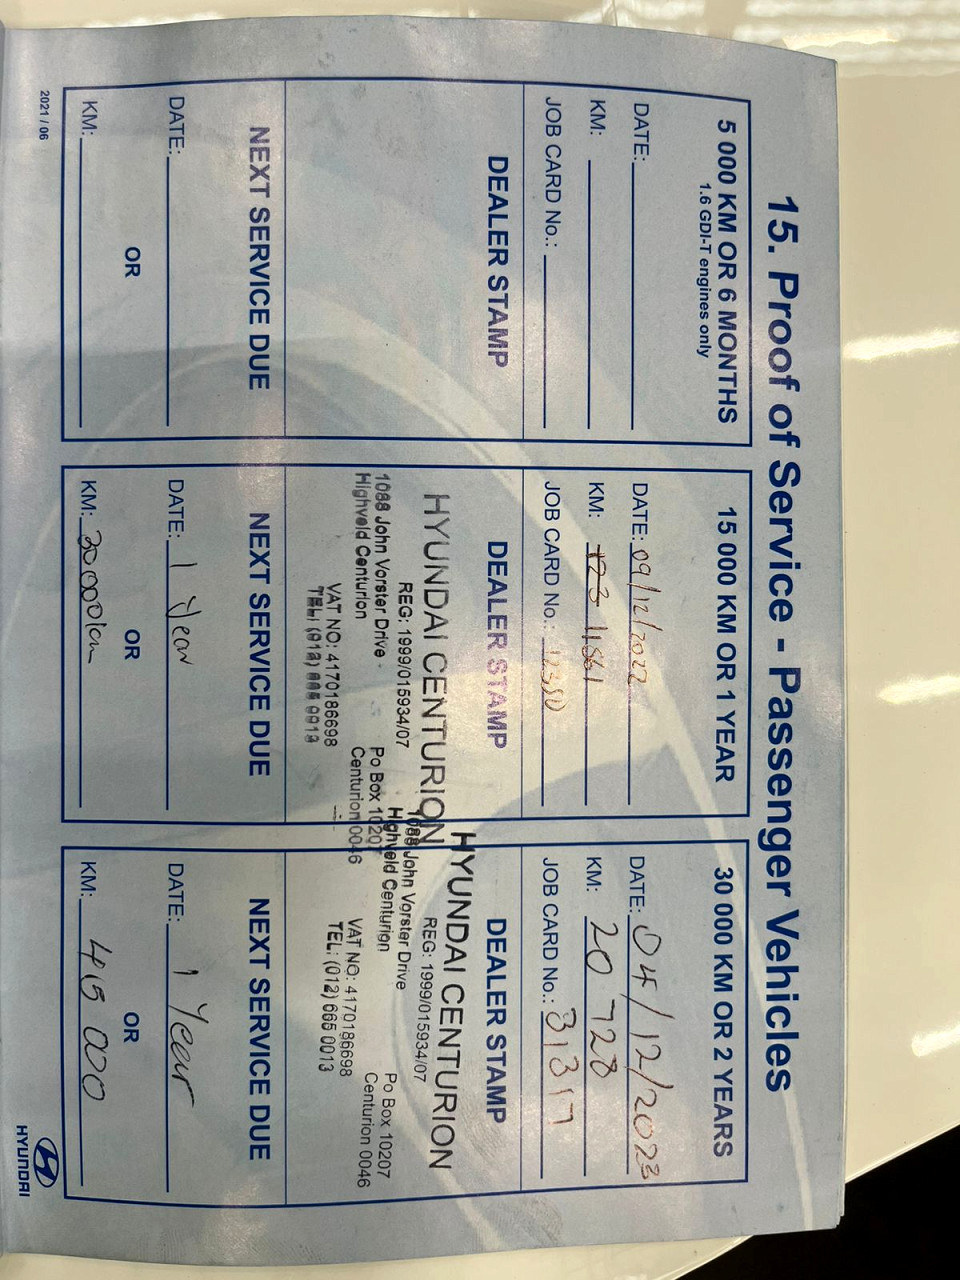 15. Proof of Service - Passenger Vehicles
5 000 KM OR 6 MONTHS
1.6 GDI-T engines only
DATE:
KM:
JOB CARD No.:
DEALER STAMP
NEXT SERVICE DUE
DATE:
OR
KM:
15 000 KM OR 1 YEAR
DATE: 09/12/2022
KM: 11561
JOB CARD No.:
DEALER STAMP
HYUNDAI CENTURION
REG: 1999/015934/07
1088 John Vorster Drive
Highveld Centurion
Po Box 10207
Centurion 0046
VAT NO: 4170186698
NEXT SERVICE DUE
DATE: 1 Year
OR
KM: 30000km
30 000 KM OR 2 YEARS
DATE: 04/12/2023
KM: 20 728
JOB CARD No.: 31317
DEALER STAMP
HYUNDAI CENTURION
REG: 1999/015934/07
1088 John Vorster Drive
Highveld Centurion
Po Box 10207
Centurion 0046
VAT NO: 4170186698
TEL: (012) 665 0013
NEXT SERVICE DUE
DATE: 1 Year
OR
KM: 45 000
2021 / 06
HYUNDAI